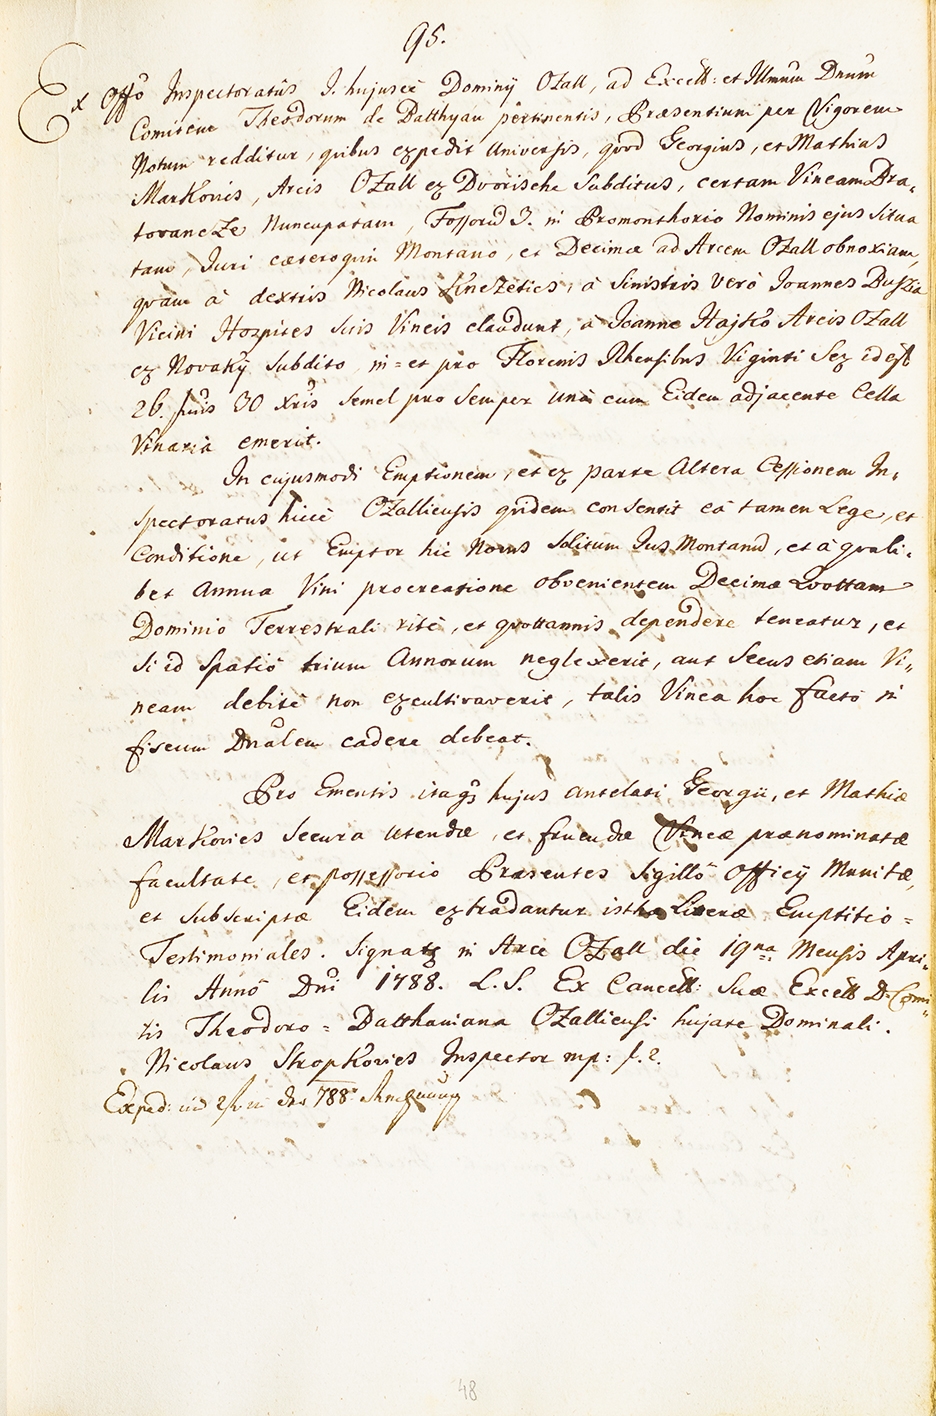 95.
Ex Offõ Inspectoratûs I. hujusce Dominÿ Ozall, ad Excell: et Illmum Dnum
Comitem Theodorum de Batthyan pertinentis, Præsentium per Vigorem
Notum redditur, quibus expedit Universis, quod Georgius, et Mathias
Markovics, Arcis Ozall ex Dvorische Subditus, certam Vineam Dra-
tovancze Nuncupatam, Fossorũ 3. in Promonthorio Nominis ejus Situa
tam, Juri cæteroquin Montano, et Decimæ ad Arcem Ozall obnoxiam,
quam à dextris Nicolaus Knezetics, à Sinistris verò Joannes
Vicini Hospites Suis Vineis claudunt, à Joanne Hajsko Arcis Ozall
ex Novaky Subdito, in = et pro Florenis Rhensibus Viginti Sex id est
26. fnis 30 Xris Semel pro Semper unà cum Eidem adjacente Cella
Vinaria emerit.
In cujusmodi Emptionem, et ex parte Altera Cessionem In-
spectoratus hicce Ozalliensis quidem consensit eâ tamen Lege, et
Conditione, ut Emptor hic Novus Solitum Jus Montanũ, et à quali-
bet Annua Vini procreatione obvenientem Decimæ Quottam
Dominio Terrestrali ritè, et quottannis dependere teneatur, et
Si id Spatiô trium Annorum neglexerit, aut Secus etiam Vi-
neam debitè non excultivaverit, talis Vinea hoc factô in
fiscum Dnalem cadere debeat.
Pro Ementis itaqз hujus Antelati Georgii, et Mathiæ
Markovics Secura Utendæ, et fruendæ Vineæ prænominatæ
facultate, et possessorio Præsentes Sigillô Officÿ Munitæ,
et Subscriptæ Eidem extradantur isthæ Literæ Emptitio =
Testimoniales. Signatz in Arce Ozall die 19na Mensis Apri-
lis Annô Dni 1788. L.S. Ex Cancell: Suæ Excell D: Comi-
tis Theodoro = Batthaniana Ozalliensi hujate Dominali.
Nicolaus Skopkovics Inspector mp: f. 2.
Exped: 788
48